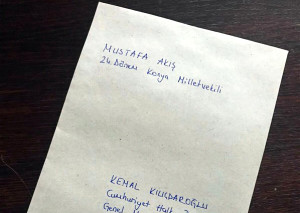 MUSTAFA AKIŞ
24.Dönem Konya Milletvekili
KEMAL KILIÇDAROĞLU
Cumhuriyet Halk
Genel